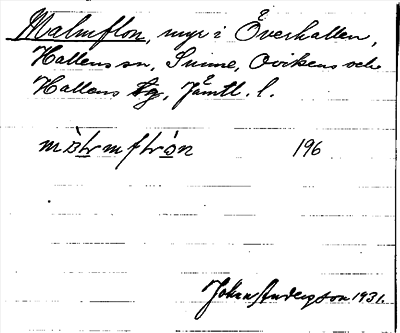 Malmflon, myr i Överhallen,
Hallens sn, Sunne, Ovikens och
Hallens tg, Jämtl. l.
196
Johan Anderson 1931.